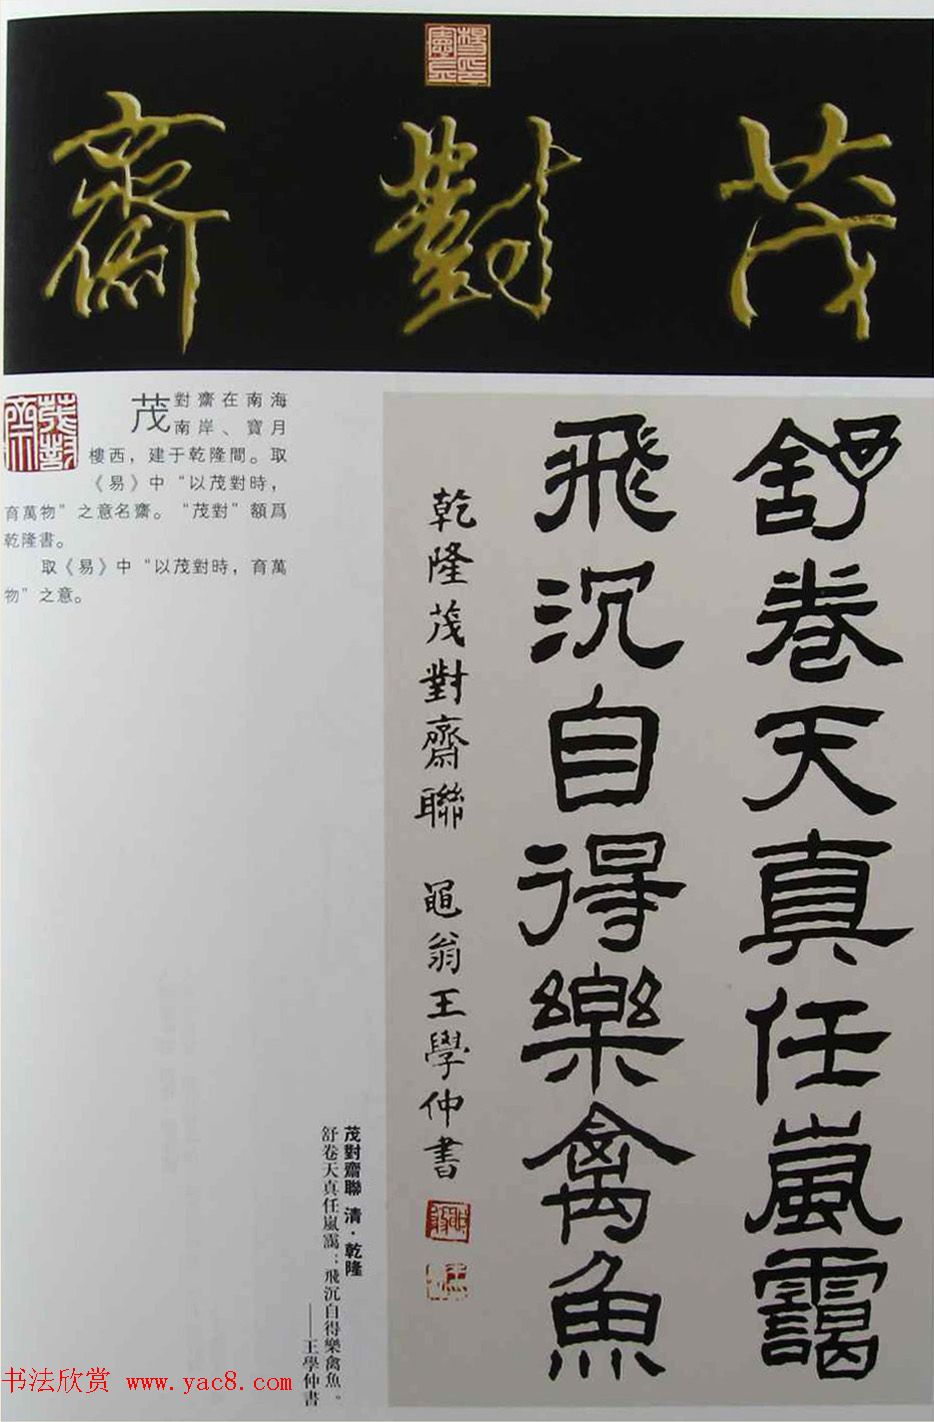 茂對齋
茂對齋在南海
南岸、寶月
樓西，建于乾隆間。取
《易》中“以茂對時，
育萬物”之意名齋。“茂對”額爲
乾隆書。
取《易》中“以茂對時，育萬
物”之意。
舒卷天真任嵐靄
飛沉自得樂禽魚
乾隆茂對齋聯 黽翁王學仲書
茂對齋聯 清·乾隆
舒卷天真任嵐靄；飛沉自得樂禽魚。
——王學仲書
茂對齋
书法欣赏 www.yac8.com